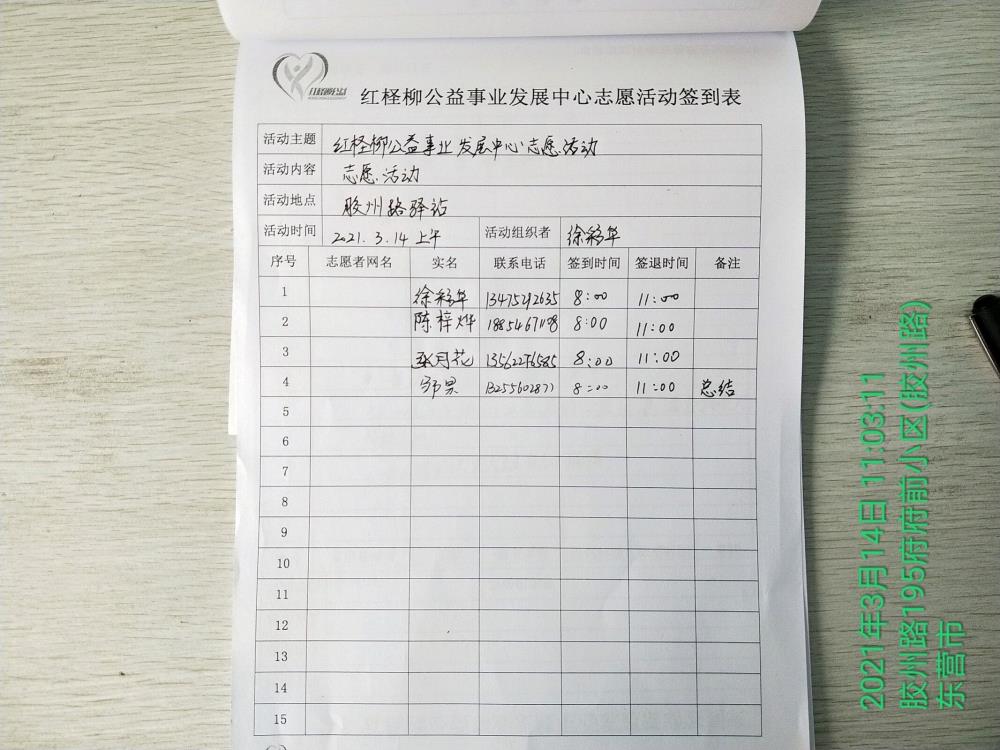 红柽柳公益
红柽柳公益事业发展中心志愿活动签到表
活动主题 红柽柳公益事业发展中心志愿活动
活动内容 志愿活动
活动地点 胶州路驿站
活动时间 2021.3.14 上午 活动组织者 徐彩华
序号 志愿者网名 实名 联系电话 签到时间 签退时间 备注
1 徐彩华 13475292635 8:00 11:00
2 陈梓烨 18854671198 8:00 11:00
3 张月花 13562276585 8:00 11:00
4 邹昊 13255602877 8:00 11:00 总结
5
6
7
8
9
10
11
12
13
14
15
2021年3月14日 11:03:11
胶州路195府府前小区(胶州路)
东营市